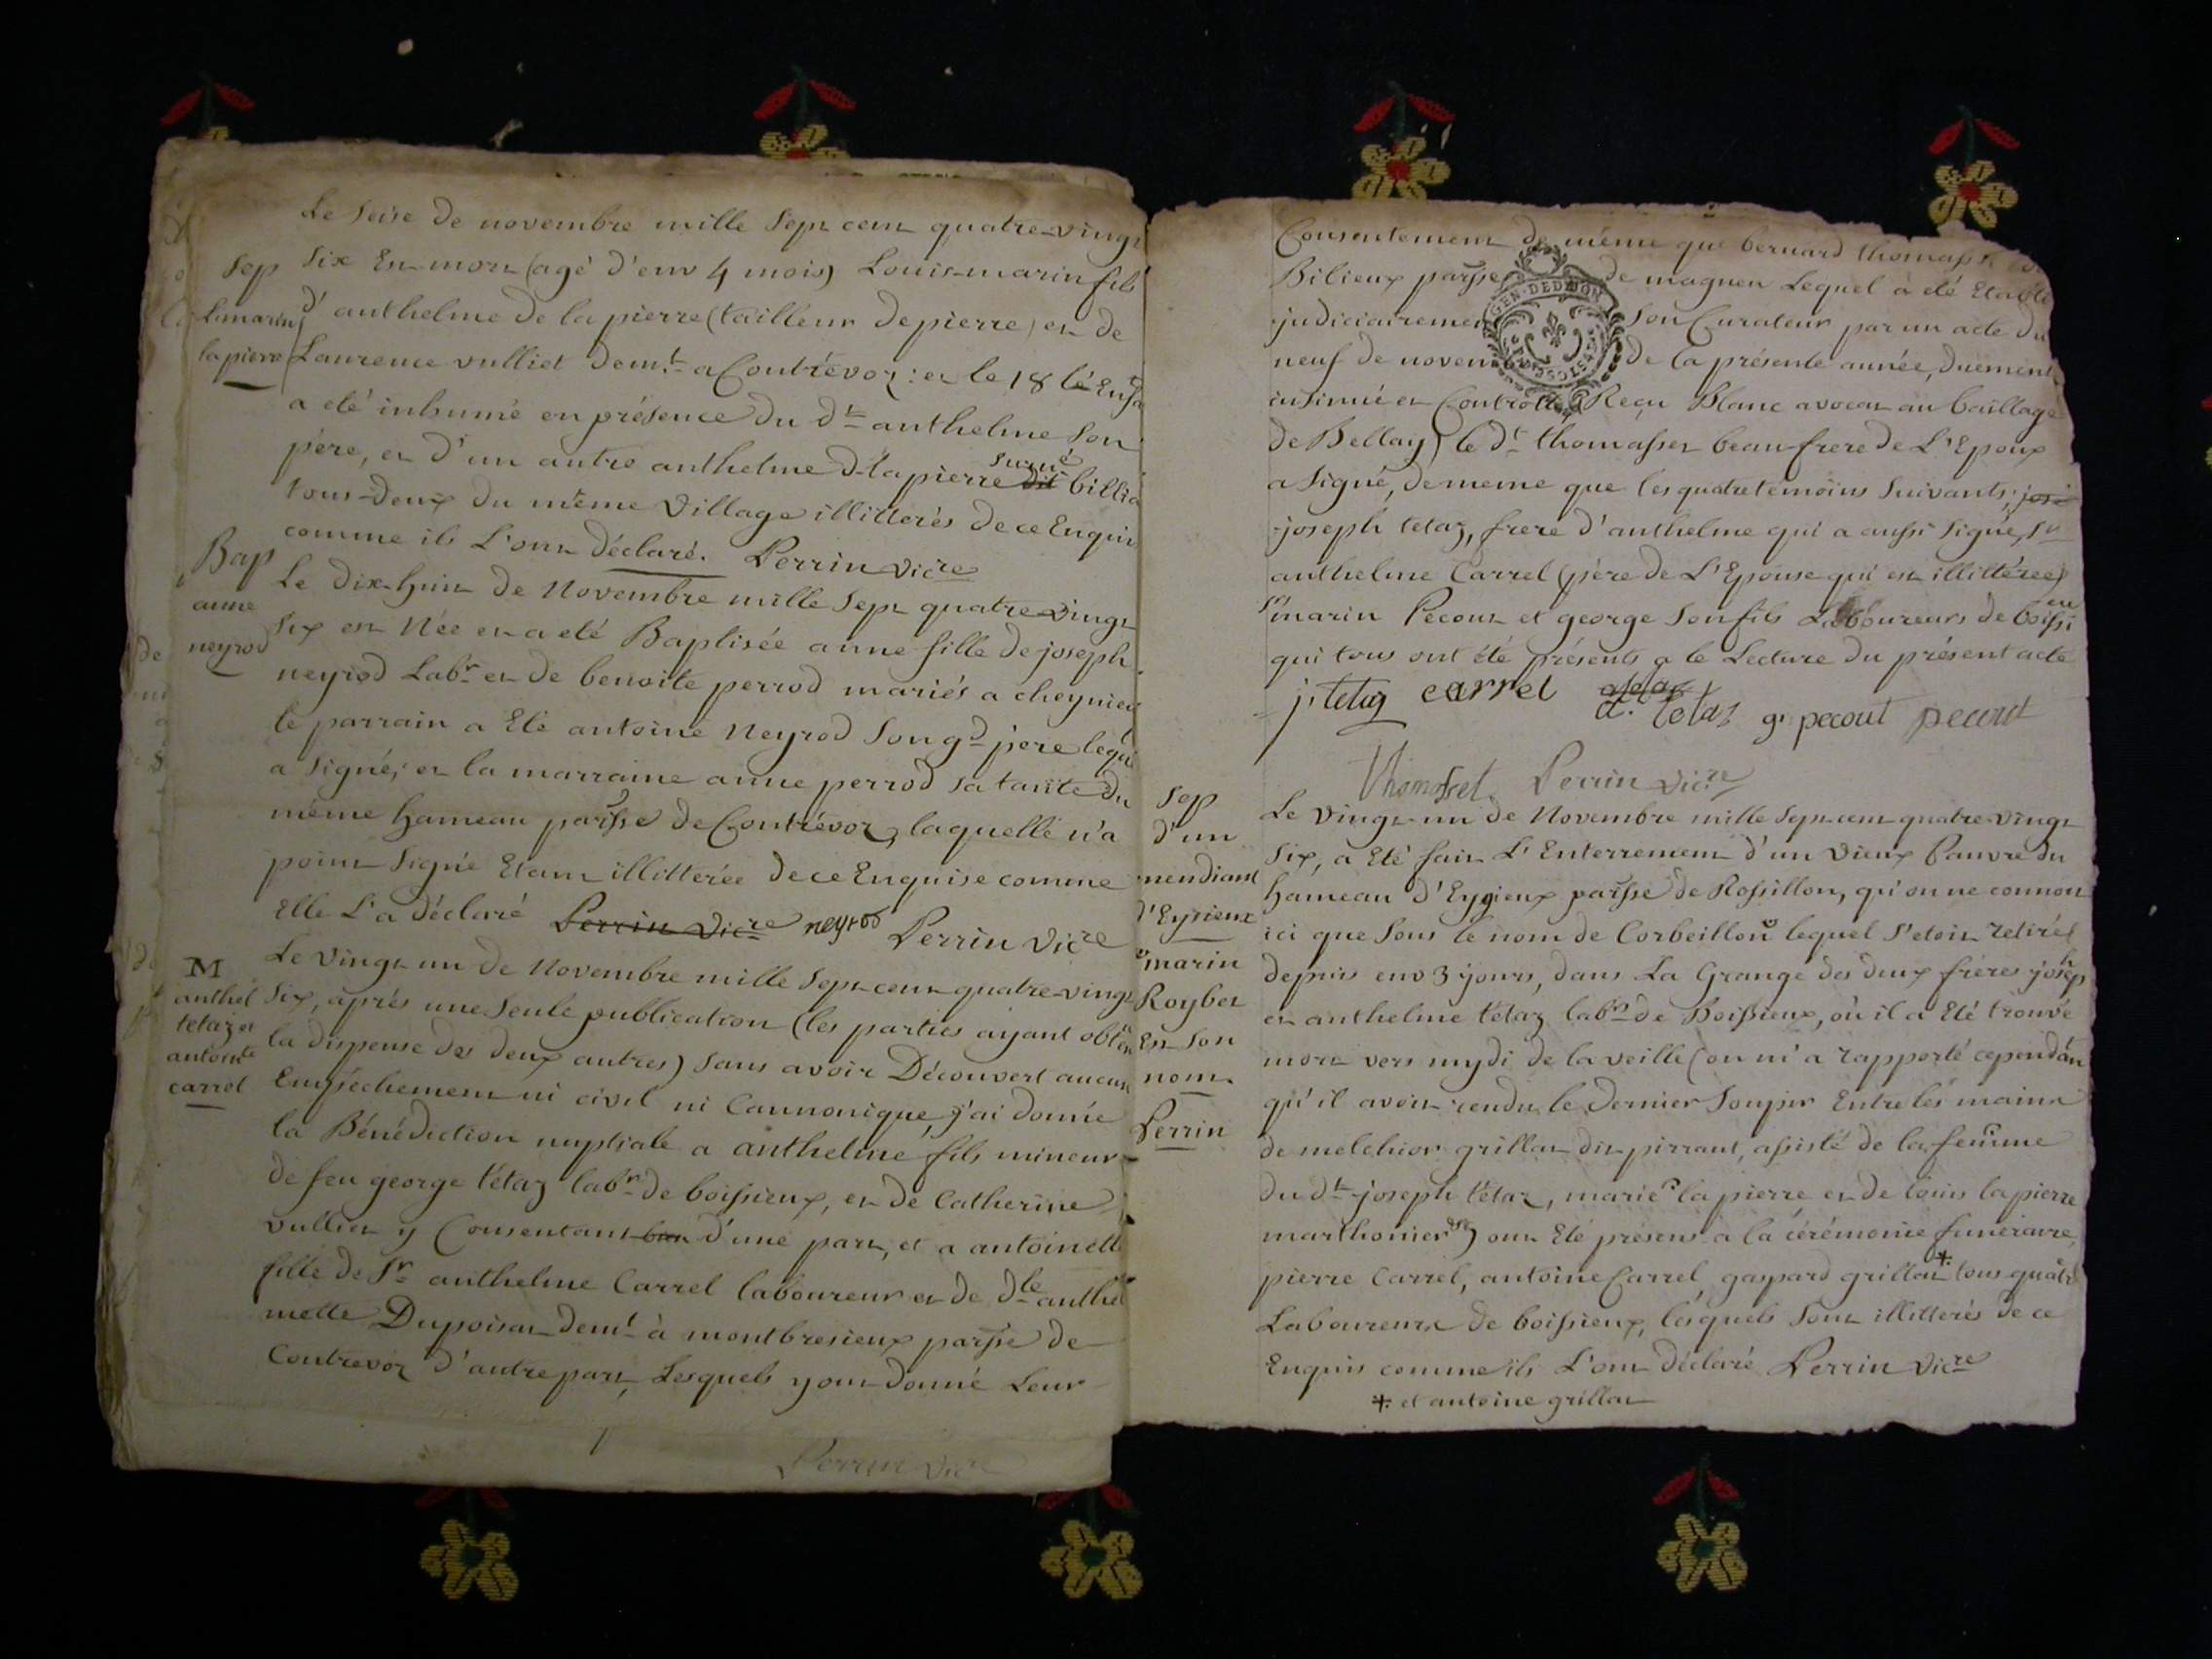 Le seise de novembre mille sept cent quatre-vingt
sep
six Est mort (agé d'env 4 mois) Louis-marin fils
L. marin
d'anthelme de la pierre (tailleur de pierre) et de
la pierre
Laurence vulliet demt a Contrévoz: et le 18 le Ensa
a été inhumé en présence du dt anthelme son
père, et d'un autre anthelme d-lapierre dit surné billia
tous-deux du même village illitterés de ce Enquis
comme ils L'ont déclaré. Perrin vicre
Bap
anne
neyrod
Le dix-huit de Novembre mille sept quatre-vingt
six est Née et a eté Baptisée anne fille de joseph
neyrod Labr et de benoite perrod mariés a cheynieu
le parrain a Eté antoine Neyrod son gd père lequel
a signé; et la marraine anne perrod sa tante du
même hameau parsse de Contrévoz, laquelle n'a
point signé Etant illitterée de ce Enquise comme
Elle L'a déclaré Perrin vicre neyrod Perrin vicre
M
anthel
tetaz et
antointe
carrel
Le vingt un de Novembre mille sept cent quatre-vingt
six, après une seule publication (les parties ayant obten
la dispense des deux autres) sans avoir Découvert aucun
Empêchement ni civil ni Cannonique, j'ai donnée
la Bénédiction nuptiale a anthelme fils mineur
de feu george tétaz labr de boissieux, et de Catherine
vulliet y Consentant d'une part, et a antoinette
fille de Sr anthelme Carrel laboureur et de dlle anthel
mette Dupoisat demt à montbresieux parsse de
Contrevoz d'autre part, Lesquels y ont donné Leur
Perrin vicre
Consentement de même que bernard thomass
Bilieux parsse de magneu Lequel a été Etabli
judiciairement son Curateur par un acte du
GEN. DE DIJON
neuf de novem de la présente année, duement
insinué et Controllé (Reçu Blanc avocat au baillage
de Bellay) le dt thomasset beau-frere de L'Epoux
a signé, de meme que les quatre temoins suivants; josé
joseph tetaz, frere d'anthelme qui a aussi signé, Sr
anthelme Carrel (père de L'Epouse qui est illittérée)
Sr marin Pecout et george son fils Laboureurs de boissieu
qui tous ont été présents a le Lecture du présent acte
j. tetaz carrel a. tetaz g. pecout pecout
thomasset Perrin vicre
sep
d'un
mendiant
d'Eysieux
marin
Roybet
Est son
nom
Perrin
Le vingt-un de Novembre mille sept cent quatre-vingt
six, a Eté fait L'Enterrement d'un vieux pauvre du
hameau d'Eygieux parsse de Rossillon, qu'on ne connoit
ici que sous le nom de Corbeillon lequel s'etoit retiré
depuis env 3 jours, dans La Grange des deux frères joseph
et anthelme tétaz labrs de Boissieux, où il a Eté trouvé
mort vers mydi de la veille (on m'a rapporté cependan
qu'il avoit rendu le dernier soupir Entre les mains
de melchior grillat dit pirraut, assisté de la femme
du dt joseph tétaz, marie la pierre et de louis lapierre
marthonier) ont Eté présens a la cérémonie funéraire,
pierre Carrel, antoine Carrel, gaspard grillat * tous quatre
Laboureurs de boissieux, lésquels sont illitterés de ce
Enquis comme ils L'ont déclaré Perrin vicre
* et antoine grillat